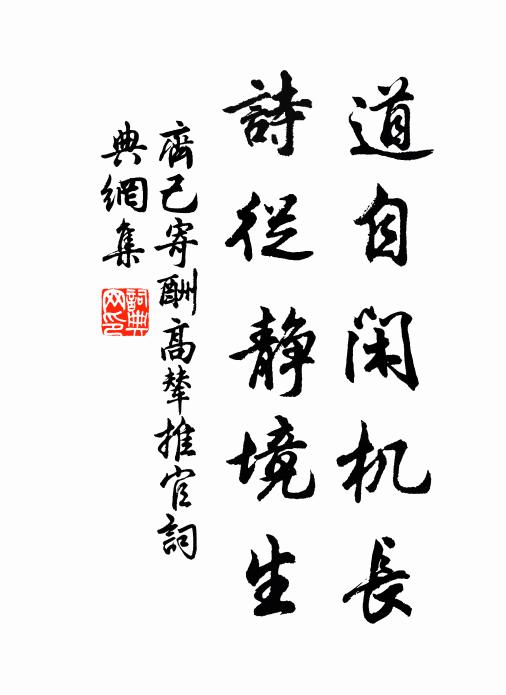 道自閑机長
詩從静境生
齊己寄酬高輦推官詞
典網集
詞典
网印